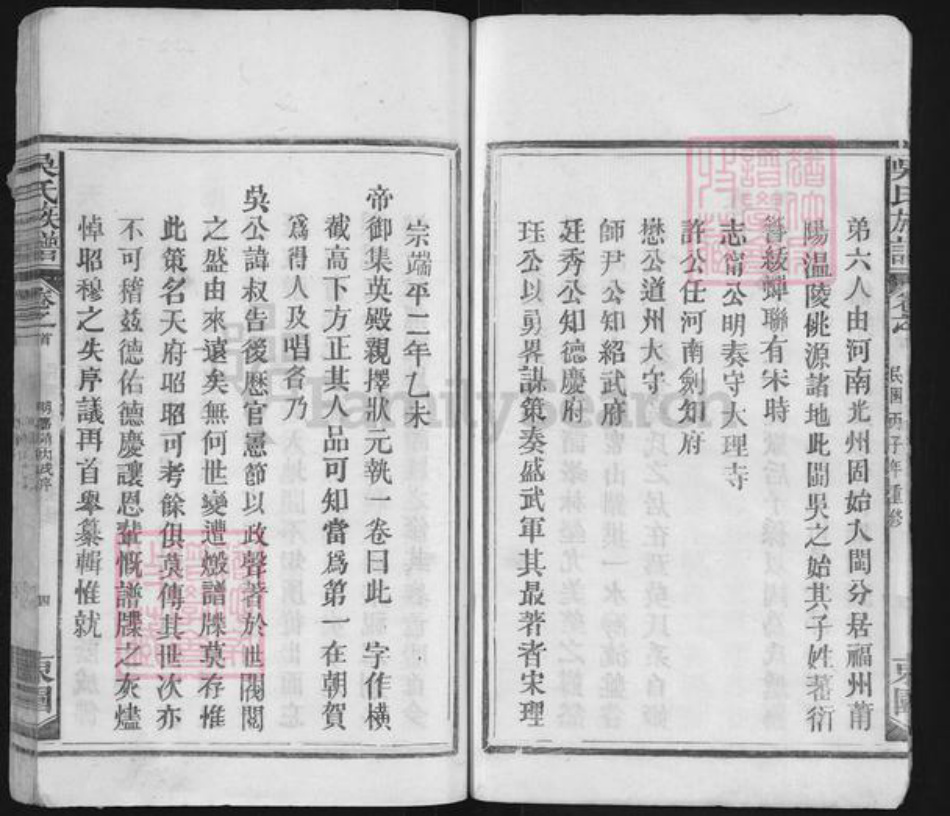 弟六人由河南光州固始入閩分居福州莆
陽温陵桃源諸地此閩吳之始其子姓蕃衍
簪紱蟬聯有宋時
志甯公明奏守大理寺
許公任河南劍知府
懋公道州大守
師尹公知紹武府
廷秀公知德慶府
珏公以勇畧謀策奏盛武軍其最著者宋理
宗端平二年乙未
帝御集英殿親擇狀元執一卷曰此 字作橫
截高下方正其人品可知當爲第一在朝賀
爲得人及唱名乃
吳公諱叔告後歷官憲節以政聲著於世閥閱
之盛由來遠矣無何世變遭燬譜牒莫存惟
此策名天府昭昭可考餘俱莫傳其世次亦
不可稽玆德佑德慶讓恩 慨譜牒之灰燼
悼昭穆之失序議再首舉纂輯惟就
吳氏族譜
卷之首
四
東園
吳氏族譜
卷之
民國丙子年重修
東園
FamilySearch